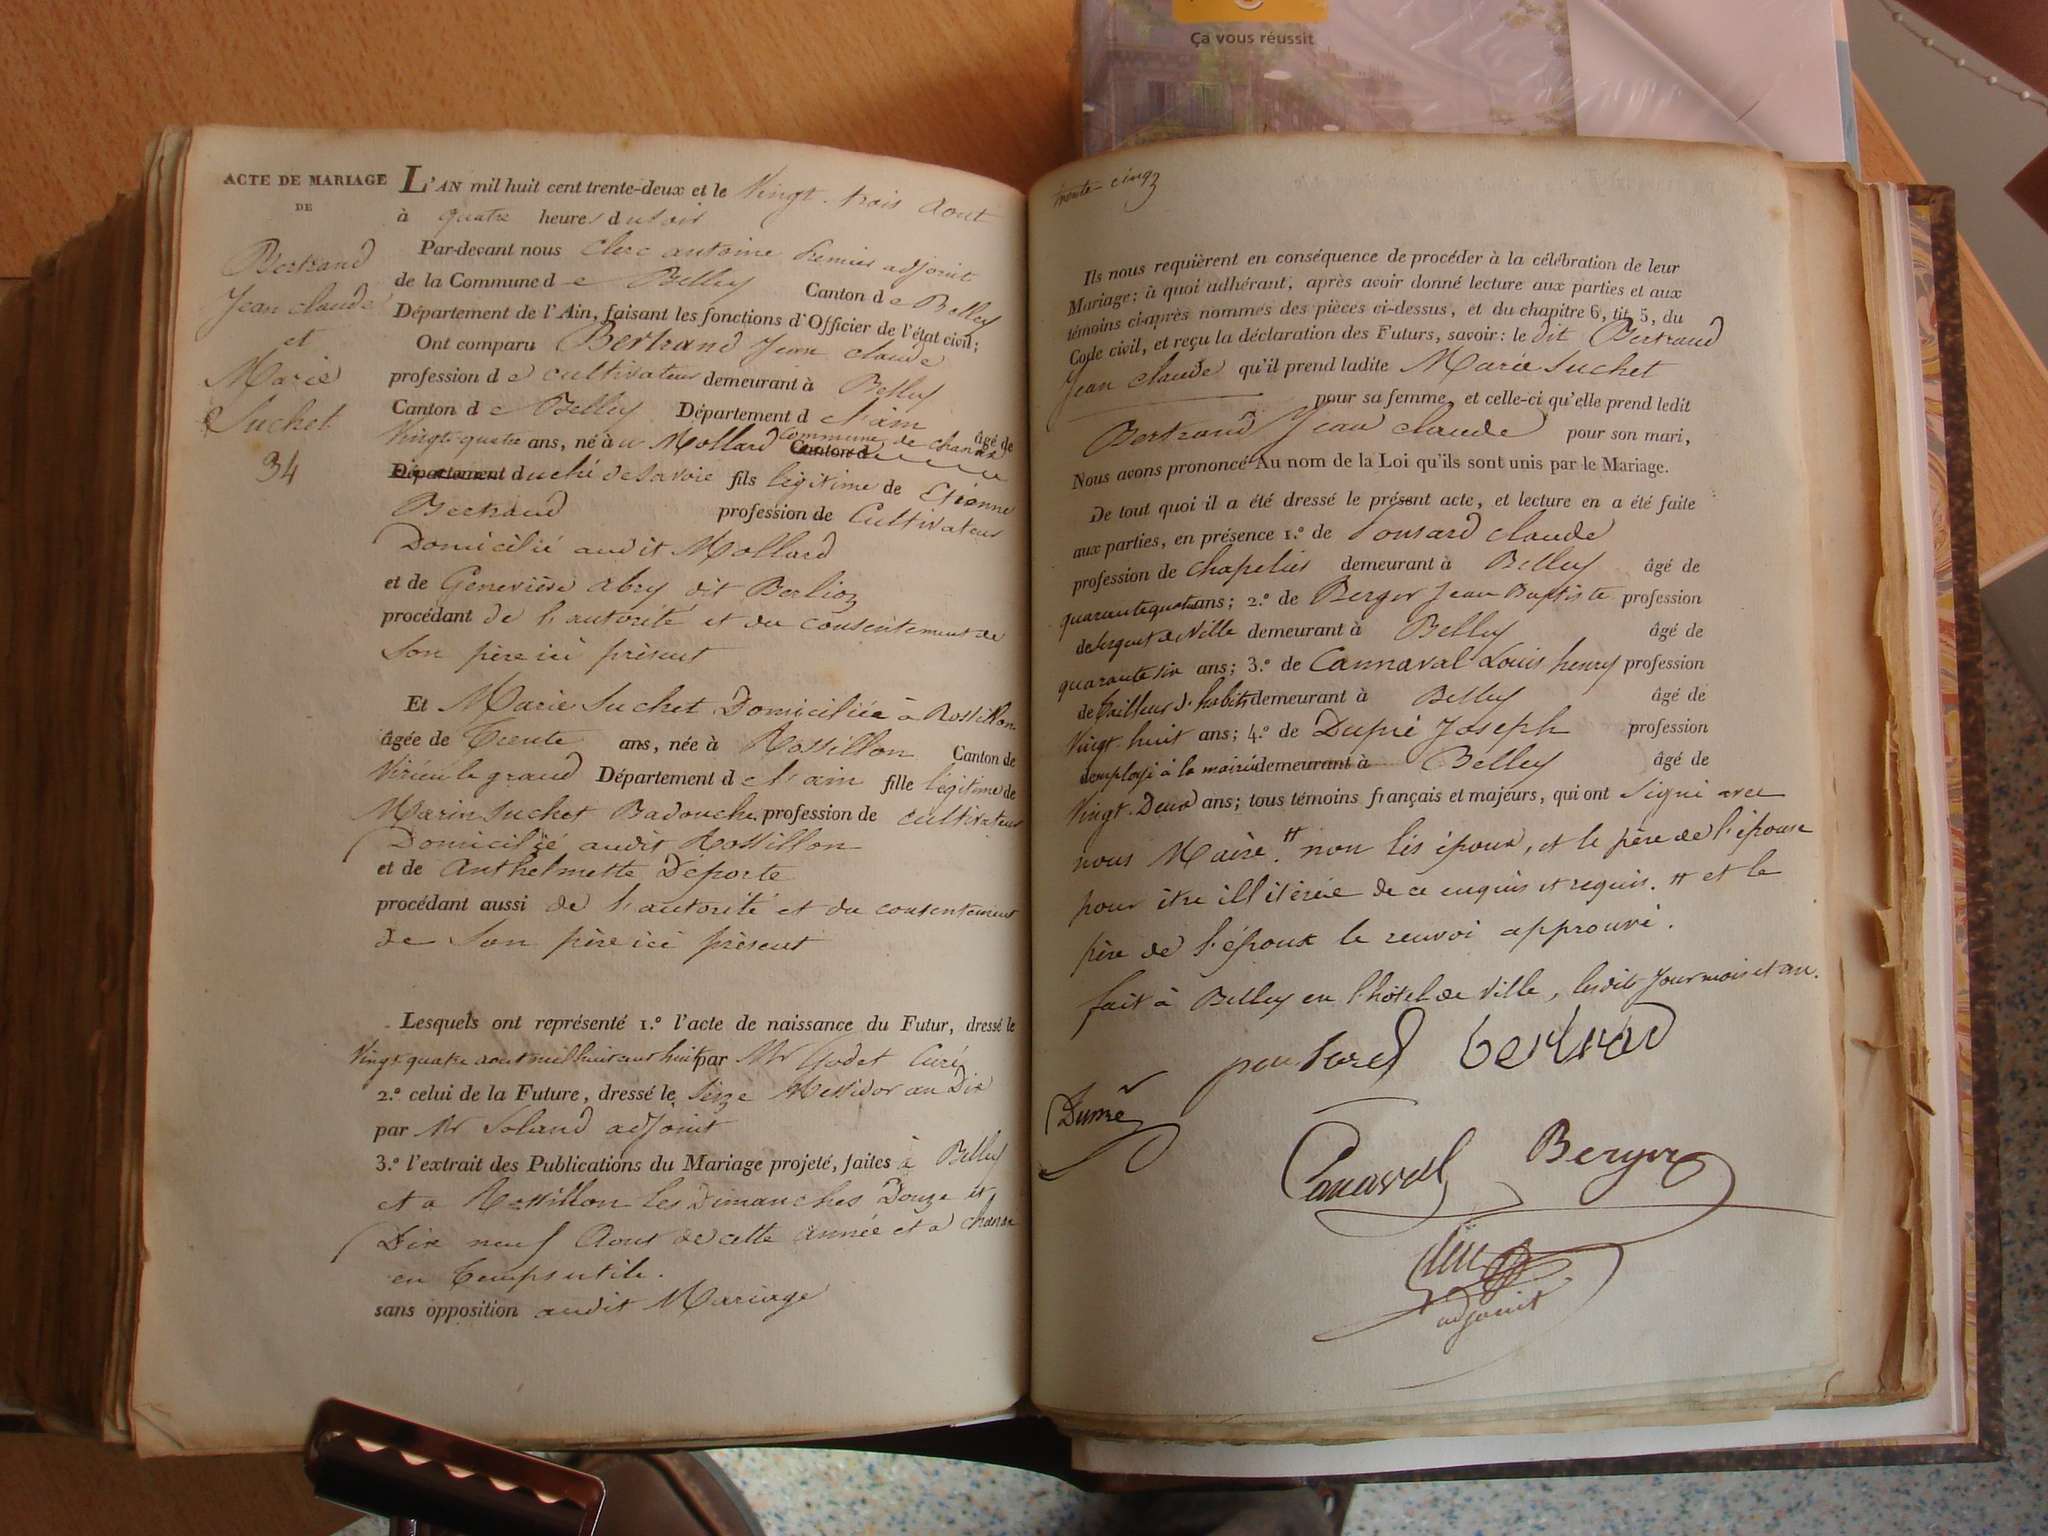 Ça vous réussit
ACTE DE MARIAGE
DE
Bertrand
Jean claude
et
Marie
Suchet
34
L'AN mil huit cent trente-deux et le Vingt-trois Aout
à quatre heures du soir
Par-devant nous Clerc antoine premier adjoint
de la Commune de Belley Canton de Belley
Département de l'Ain, faisant les fonctions d'Officier de l'état civil;
Ont comparu Bertrand Jean claude
profession de cultivateur demeurant à Belley
Canton de Belley Département de l'ain âgé de
Vingt quatre ans, né au Mollard Commune de chanaz Canton d
Département duché de Savoie fils légitime de Etienne
Bertrand profession de Cultivateur
Domicilié audit Mollard
et de Genevière abry dit Berlioz
procédant de l'autorité et du consentement de
Son père ici présent
Et Marie Suchet Domiciliée à Rossillon
âgée de Trente ans, née à Rossillon Canton de
Virieu le grand Département de l'ain fille légitime de
Marin Suchet Badouche profession de cultivateur
Domicilié audit Rossillon
et de Anthelmette Déporte
procédant aussi de l'autorité et du consentement
de Son père ici présent
Lesquels ont représenté 1.° l'acte de naissance du Futur, dressé le
Vingt quatre aout mil huit cent huit par Mr Godet Curé
2.° celui de la Future, dressé le Seize Messidor an Dix
par Mr Soland adjoint
3.° l'extrait des Publications du Mariage projeté, faites à Belley
et a Rossillon les Dimanches Douze et
Dix neuf Aout de cette année et a chanaz
en temps utile.
sans opposition audit Mariage
trente-cinq
Ils nous requièrent en conséquence de procéder à la célébration de leur
Mariage; à quoi adhérant, après avoir donné lecture aux parties et aux
témoins ci-après nommés des pièces ci-dessus, et du chapitre 6, tit. 5, du
Code civil, et reçu la déclaration des Futurs, savoir: le dit Bertrand
Jean claude qu'il prend ladite Marie Suchet
pour sa femme, et celle-ci qu'elle prend ledit
Bertrand Jean claude pour son mari,
Nous avons prononcé Au nom de la Loi qu'ils sont unis par le Mariage.
De tout quoi il a été dressé le présent acte, et lecture en a été faite
aux parties, en présence 1.° de Ponsard claude
profession de chapelier demeurant à Belley âgé de
quarante quatre ans; 2.° de Berger Jean Baptiste profession
de sergent de Ville demeurant à Belley âgé de
quarante six ans; 3.° de Cannaval Louis henry profession
de tailleur d'habits demeurant à Belley âgé de
Vingt-huit ans; 4.° de Dupré Joseph profession
d'employé à la mairie demeurant à Belley âgé de
Vingt-Deux ans; tous témoins français et majeurs, qui ont Signé avec
nous Maire. # non les époux, et le père de l'épouse
pour être illitérée de ce enquis et requis. # et le
père de l'époux le renvoi approuvé.
fait à Belley en l'hôtel de Ville, lesdits Jour mois et an.
ponsard bertrand
Dupré
Canaval Berger
Clerc
adjoint